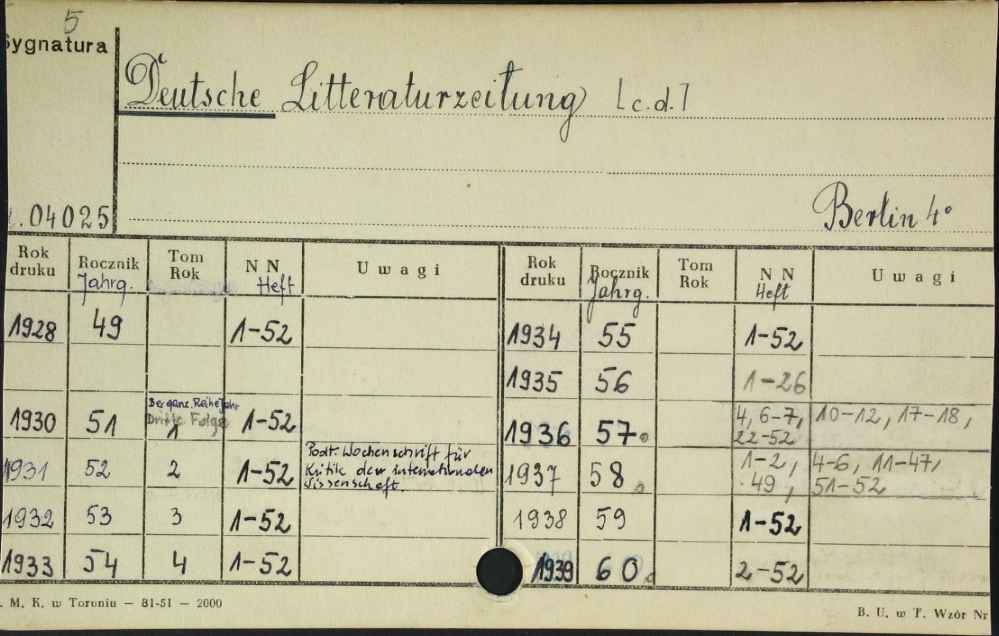 5
Sygnatura
Deutsche Litteraturzeitung [c.d.]
.04025
Berlin 4°
Rok druku Rocznik Jahrg. Tom Rok N N Heft Uwagi Rok druku Rocznik Jahrg. Tom Rok N N Heft Uwagi
1928 49 1-52 1934 55 1-52
1935 56 1-26
1930 51 Der ganz. Reihe Jahr Dritte Folge 1 1-52 1936 57. 4, 6-7, 10-12, 17-18, 22-52
1931 52 2 1-52 Podt. Wochenschrift für Kritik der internationalen Wissenschaft. 1937 58. 1-2, 4-6, 11-47, 49, 51-52
1932 53 3 1-52 1938 59 1-52
1933 54 4 1-52 1939 60. 2-52
. M. K. w Toruniu — 81-51 — 2000
B. U. w T. Wzór Nr